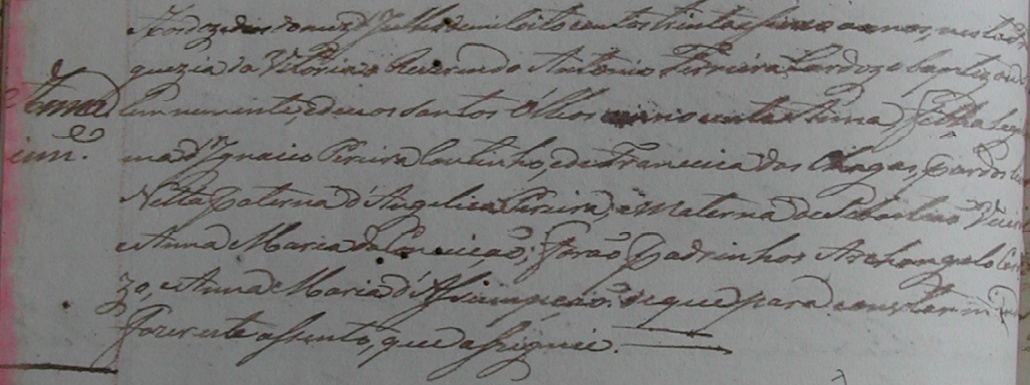 Aos doze dias do mez d' Julho de mil oito centos trinta e sinco annos, nesta Fre
guezia da Vitória o Reverendo Antonio Ferreira Cardozo baptizou so
Anna lemnemente, e deu os santos Oleos a innocente Anna, Filha legiti
inn.e ma d' Ignacio Pereira Coutinho, e de Francisca das Chagas, pardos
Netta paterna d' Angelica Pereira, e Materna de Vieira
e Anna Maria da Conceiçaõ; Foraõ Padrinhos Archangelo Car
zo, e Anna Maria d' Assumpcaõ: de que para constar m
Fazer este assento, que assignei.